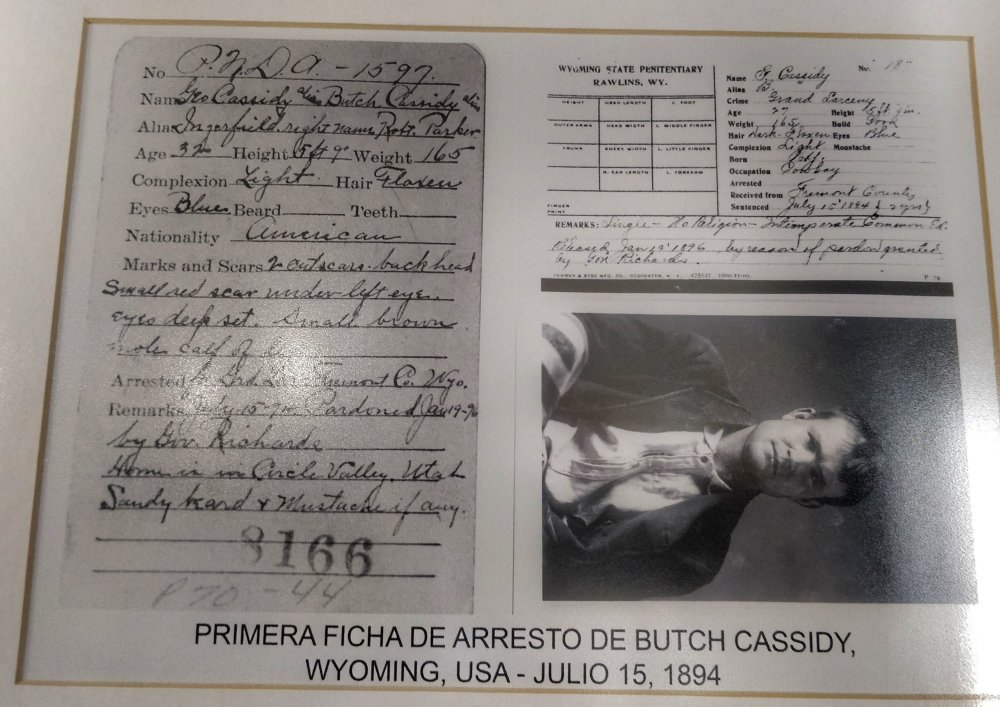 No P.N.D.A. - 1597.
Name Geo Cassidy alias Butch Cassidy alias
Alias Ingerfield. right name Robt. Parker
Age 32 Height 5 ft 9" Weight 165
Complexion Light. Hair Flaxen
Eyes Blue Beard Teeth
Nationality American
Marks and Scars 2 cut scars. back head
Small red scar under left eye.
eyes deep set. Small brown
mole calf of
Arrested Fremont Co. Wyo.
Remarks July 15-94. Pardoned Jan 19-96
by Gov. Richards
Home is in Circle Valley, Utah
Sandy beard & Mustache if any.
8166
P 70 - 44
WYOMING STATE PENITENTIARY
RAWLINS, WY.
HEIGHT HEAD LENGTH L. FOOT
OUTER ARMS HEAD WIDTH L. MIDDLE FINGER
TRUNK CHEEK WIDTH L. LITTLE FINGER
R. EAR LENGTH L. FOREARM
FINGER
PRINT
Name G. Cassidy No. 18
Alias B
Crime Grand Larceny
Age 27 Height 5 ft 9 in.
Weight 165 Build Good
Hair Dark Flaxen Eyes Blue
Complexion Light Moustache
Born
Occupation Cowboy
Arrested
Received from Fremont County
Sentenced July 15" 1894 2 yrs
REMARKS: Single - No Religion - Intemperate Common Ed.
Released Jan 19" 1896 by reason of pardon granted
by Gov. Richards.
PRIMERA FICHA DE ARRESTO DE BUTCH CASSIDY,
WYOMING, USA - JULIO 15, 1894